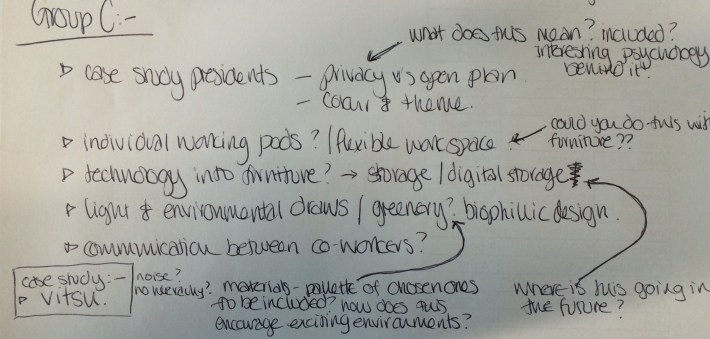 Group C:-
what does this mean? included?
interesting psychology
behind it!
▷ case study presidents - privacy v's open plan.
- colour & theme.
▷ individual working pods? / flexible workspace
could you do this with
furniture??
▷ technology into furniture? → storage / digital storage
▷ light & environmental draws / greenery? biophillic design.
▷ communication between co-workers?
case study:-
▷ vitsu.
noise?
no hierarchy?
materials - pallette of chosen ones
to be included? how does this
encourage exciting environments?
where is this going in
the future?